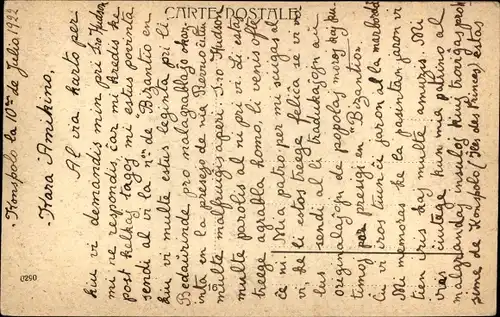 CARTE POSTALE
-Konspolo la 10an de Julio 1922
-Kara Amikino,
Al via karto per
kiu vi demandis min pri S-ro Hudson
mi ne respondis, ĉar mi kredis ke
post kelkaj tagoj mi estus povinta
sendi al vi la n-ron de "Bizantio" en
kiu vi multe estus leginta pri li
Bedaŭrinde pro malagrablaĵo okaz-
inta en la presejo de nia Revuo ĉi tiu
multe malfruiĝis aperi. S-ro Hudson
multe parolis al ni pri vi. Li estas
treege agrabla homo, li venis ofte
ĉe ni. Mia patro per mi sciigas al
vi, ke li estos treege feliĉa se vi
sendi al li tradukaĵojn aŭ
originalaĵojn de popolaj moroj kaj
timoj por presigi en "Bizantio".
Ĉu vi iros tiun ĉi jaron al la marbordo
Mi memoras ke la pasintan jaron vi
tien iris kaj multe amuziĝis. Mi
iras ĉiutage kun mia patrino al
malgrandaj insuloj kiuj troviĝas prok-
sime de Konspolo (Iles des Princes) estas
0290
16